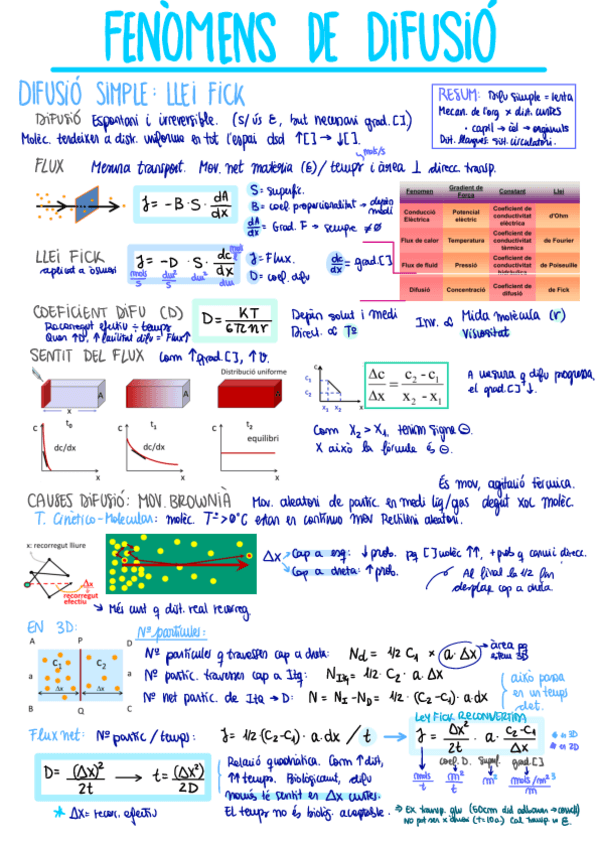 FENÒMENS DE DIFUSIÓ
DIFUSIÓ SIMPLE: LLEI FICK
RESUM: Difu simple = lenta
Mecan. de l'org x dist. curtes
• capil → cèl → orgànuls
Dist. llargues: sist. circulatori.
DIFUSIÓ Espontani i irreversible. (s/ús E, but necessari grad. [])
Molèc. tendeixen a distr. uniforme en tot l'espai dsd ↑[] → ↓[].
FLUX Mesura transport. Mov. net matèria (G) / temps i àrea ⊥ direcc. transp.
mols/s
J = -B · S · dA/dx
S = superfíc.
B = coef. proporcionalitat → depèn medi
dA/dx = Grad. F → sempre ≠ 0
Fenomen Gradient de Força Constant Llei
Conducció Elèctrica Potencial elèctric Coeficient de conductivitat elèctrica d'Ohm
Flux de calor Temperatura Coeficient de conductivitat tèrmica de Fourier
Flux de fluid Pressió Coeficient de conductivitat hidràulica de Poiseuille
Difusió Concentració Coeficient de difusió de Fick
LLEI FICK
J = -D · S · dc/dx
J = Flux.
D = coef. difu
dc/dx = grad []
COEFICIENT DIFU (D)
Recorregut efectiu ÷ temps
D = KT / 6πηr
Depèn solut i medi
Direct. ∝ Tª
Inv. ∝ Mida molècula (r)
Viscositat
SENTIT DEL FLUX Com ↑grad. [], ↑v.
Distribució uniforme
A A
x
t₀ t₁ t₂
C dc/dx x
C dc/dx x
C equilibri x
C C₁ C₂ x₁ x₂ x
Δc/Δx = c₂ - c₁ / x₂ - x₁
A mesura q difu progressa, el grad. [] ↓.
Com x₂ > x₁, tenim signe ⊖.
X això la fórmula és ⊖.
És mov, agitació tèrmica.
CAUSES DIFUSIÓ: MOV. BROWNIÀ Mov. aleatori de partíc. en medi líq/gas degut xoc molèc.
T. Cinètico-Molecular: molèc. Tª > 0°C estan en continuo mov rectilini aleatori.
x: recorregut lliure
Δx
recorregut efectiu
Δx
Cap a esq: ↓ prob. pq [] molèc ↑↑, + prob q canvii direcc.
Cap a dreta: ↑ prob.
Al final la 1/2 fan desplaç cap a dreta.
↘ Més curt q dist. real recorreg.
EN 3D:
A P D
C₁ C₂
a a
Δx Δx
B Q C
Nº partícules:
Nº partícules q travessen cap a dreta: Nd = 1/2 C₁ × a · Δx
Nº partíc. travessen cap a Itq: NItq = 1/2 · C₂ · a · Δx
Nº net partíc. de Itq → D: N = NI - ND = 1/2 · (C₂ - C₁) · a · dx
això passa en un temps det.
Flux net: Nº partíc / temps: J = 1/2 (C₂ - C₁) · a · dx / t →
LLEY FICK RECONVERTIDA
J = Δx²/2t · a · C₂ - C₁/Δx
coef. D. Superf. grad. []
mols/s m²/s m²
D = (Δx)²/2t → t = (Δx²)/2D
* Δx = recorr. efectiu
Relació quadràtica. Com ↑dist, ↑↑ temps. Biològicament, difu només té sentit en Δx curtes.
El temps no és biològ. acceptable.